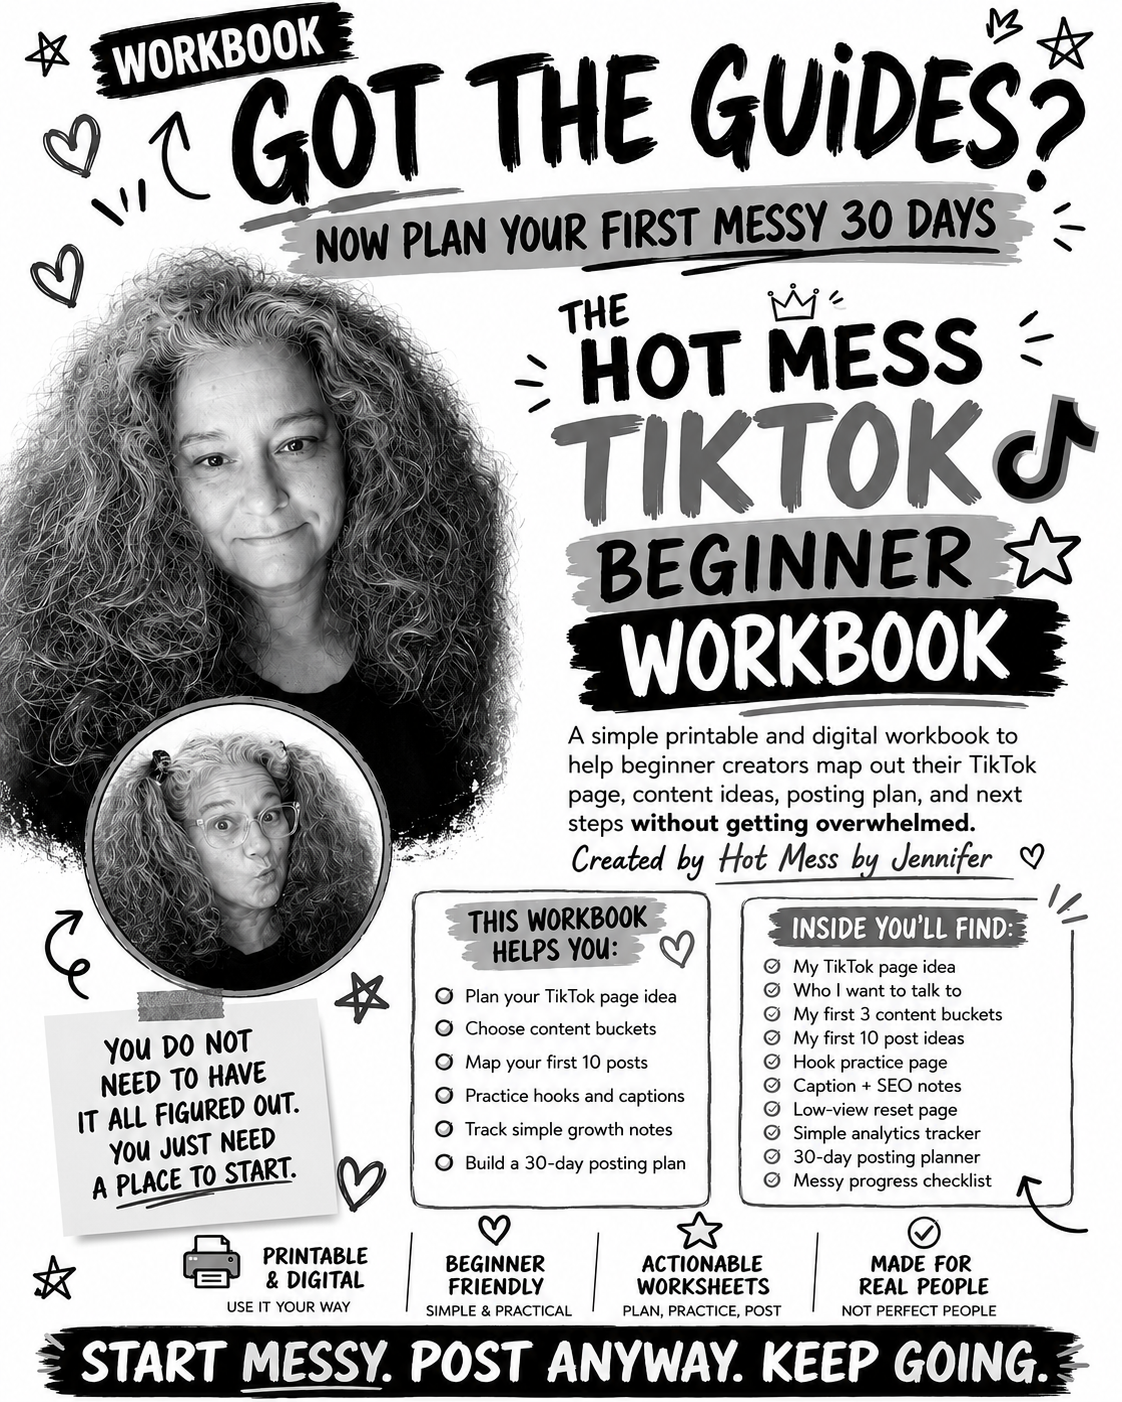 WORKBOOK
GOT THE GUiDES?
NOW PLAN YOUR FIRST MESSY 30 DAYS
THE
HOT MESS
TIKTOK
BEGINNER
WORKBOOK
A simple printable and digital workbook to
help beginner creators map out their TikTok
page, content ideas, posting plan, and next
steps without getting overwhelmed.
Created by Hot Mess by Jennifer
THIS WORKBOOK
HELPS YOU:
Plan your TikTok page idea
Choose content buckets
Map your first 10 posts
Practice hooks and captions
Track simple growth notes
Build a 30-day posting plan
INSIDE YOU'LL FIND:
My TikTok page idea
Who I want to talk to
My first 3 content buckets
My first 10 post ideas
Hook practice page
Caption + SEO notes
Low-view reset page
Simple analytics tracker
30-day posting planner
Messy progress checklist
YOU DO NOT
NEED TO HAVE
IT ALL FIGURED OUT.
YOU JUST NEED
A PLACE TO START.
PRINTABLE
& DIGITAL
USE IT YOUR WAY
BEGINNER
FRIENDLY
SIMPLE & PRACTICAL
ACTIONABLE
WORKSHEETS
PLAN, PRACTICE, POST
MADE FOR
REAL PEOPLE
NOT PERFECT PEOPLE
START MESSY. POST ANYWAY. KEEP GOING.